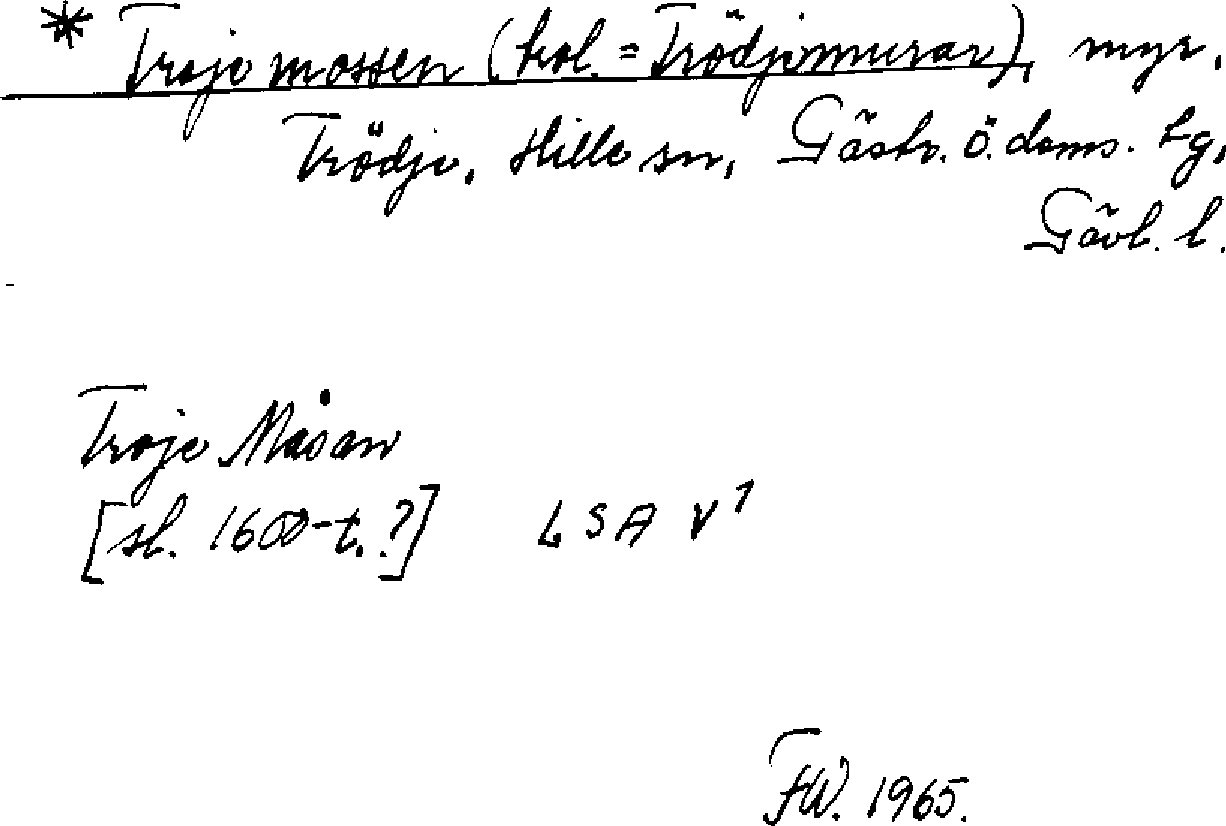 * Trojemossen (trol. = Trödjemuran), myr.
Trödje, Hille sn, Gästr. ö. doms. tg,
Gävl. l.
Troje Måsan
[sl. 1600-t.?] LSA V1
FW. 1965.